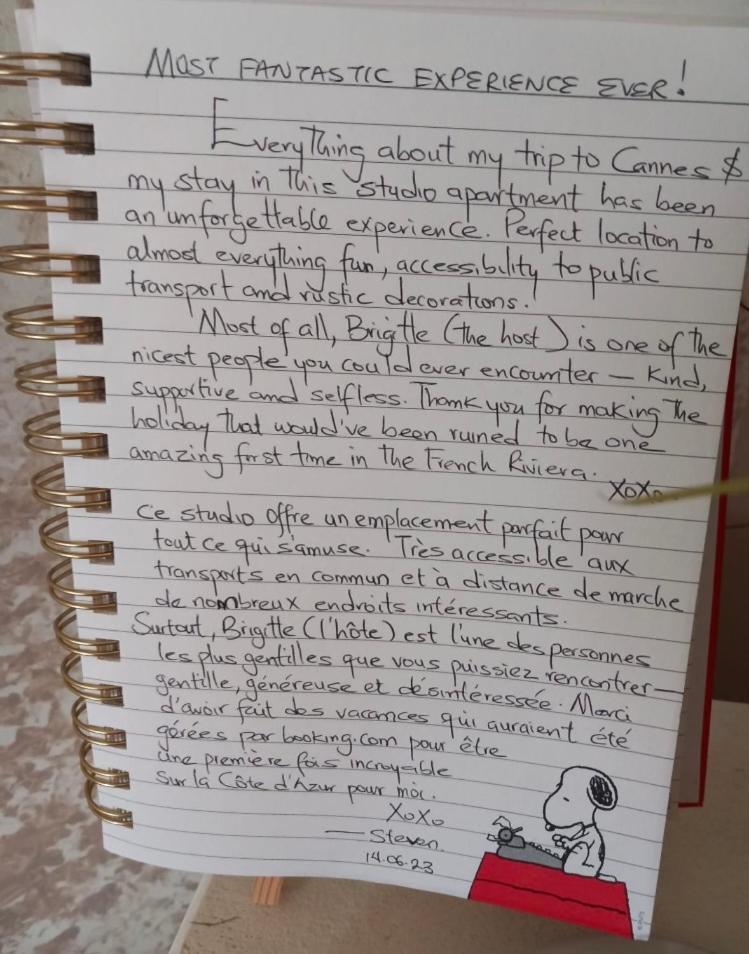 MOST FANTASTIC EXPERIENCE EVER!
Everything about my trip to Cannes $
my stay in this studio apartment has been
an unforgettable experience. Perfect location to
almost everything fun, accessibility to public
transport and rustic decorations.
Most of all, Brigtte (the host) is one of the
nicest people you could ever encounter — Kind,
supportive and selfless. Thank you for making the
holiday that would've been ruined to be one
amazing first time in the French Riviera.
XoXo
Ce studio offre un emplacement parfait pour
tout ce qui s'amuse. Très accessible aux
transports en commun et à distance de marche
de nombreux endroits intéressants.
Surtout, Brigitte (l'hôte) est l'une des personnes
les plus gentilles que vous puissiez rencontrer—
gentille, généreuse et désintéressée. Merci
d'avoir fait des vacances qui auraient été
gérées par booking.com pour être
une première fois incroyable
Sur la Côte d'Azur pour moi.
XoXo
— Steven.
14.06.23